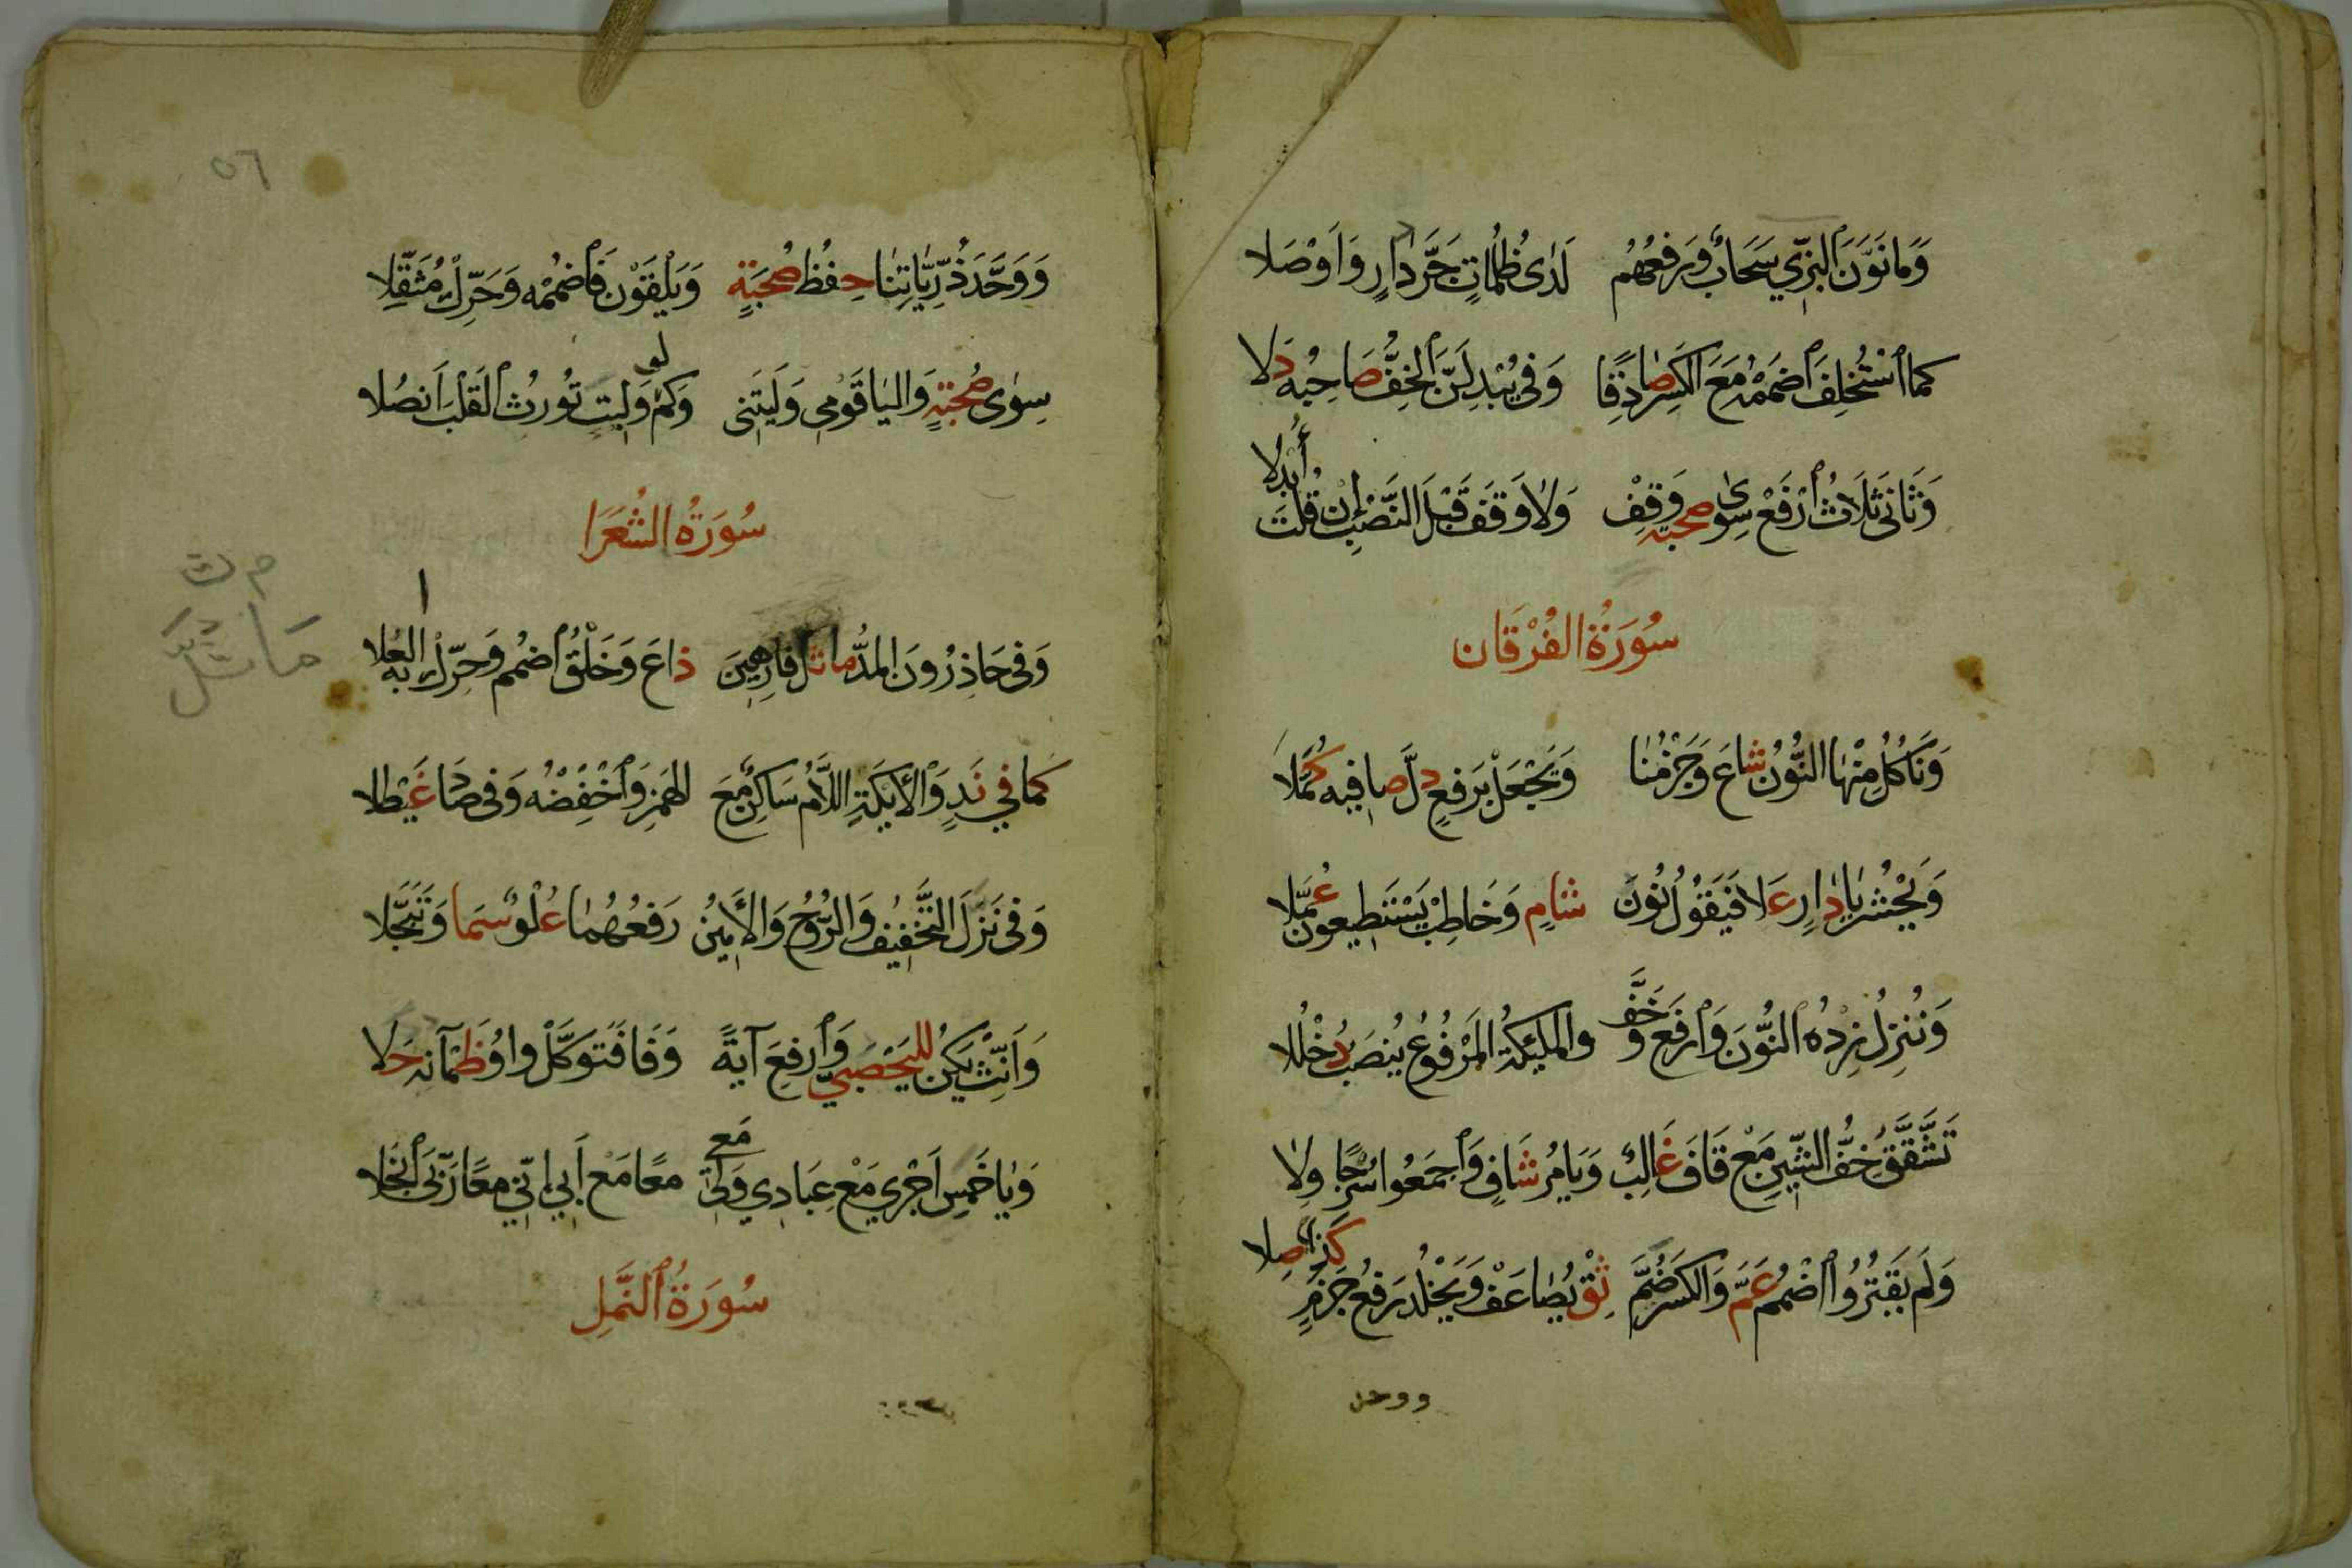 وَمَا نَوَّنَ ٱلْبَزِّي سَحَابٌ وَرَفْعُهُم لَدٰى ظُلُمَاتٍ جَرَّ دَارٍ وَأَوْصَلَا
كَمَا ٱسْتُخْلِفَ ٱضْمُمْهُ مَعَ الكَسْرِ صَادِقًا وَفِي يُبْدِلَنَّ ٱلْخِفُّ صَاحِبُهُ دَلَا
وَثَانِي ثَلَاثُ ٱرْفَعْ سِوٰى صُحْبَةٍ وَقِفْ وَلَا وَقْفَ قَبْلَ النَّصْبِ إِنْ قُلْتَ أُبْدِلَا
سُورَةُ الفُرْقَان
وَنَأْكُلُ مِنْهَا النُّونُ شَاعَ وَجَزْمُنَا وَيَجْعَلْ بِرَفْعٍ دَلَّ صَافِيهِ كُمَّلَا
وَيَحْشُرُ يَا دَارٍ عَلَا فَيَقُولُ نُونُ شَامٍ وَخَاطِبْ يَسْتَطِيعُونَ عُمَّلَا
وَنُنْزِلُ زِدْهُ ٱلنُّونَ وَٱرْفَعْ وَخَفَّ والمَلٰئِكَةُ المَرْفُوعُ يُنْصَبُ دُخْلُلَا
تَشَّقَّقُ خِفُّ الشِّينِ مَعْ قَافَ غَالِبٌ وَيَأْمُرُ شَافٍ وَٱجْمَعُوا سُرُجًا وِلَا
وَلَمْ يَقْتُرُوا ٱضْمُمْ عَمَّ وَالكَسْرَ ضُمَّ ثِقْ يُضَاعَفْ وَيَخْلُدْ رَفْعُ جَزْمٍ كَذِي صِلَا
ووحد
٥٦
وَوَحَّدَ ذُرِّيَّاتِنَا حِفْظُ صُحْبَةٍ وَيَلْقَوْنَ فَاضْمُمْهُ وَحَرِّكْ مُثَقِّلَا
سِوٰى صُحْبَةٍ وَاليَا قَوْمِي وَلَيْتَنِي وَكَمْ لَو وَلَيْتٍ تُورِثُ ٱلْقَلْبَ أَنْصُلَا
سُورَةُ الشُّعَرَا
وَفِي حَاذِرُونَ المَدُّ مَا ثُلَّ فَارِهِينَ ذَاعَ وَخَلْقُ ٱضْمُمْ وَحَرِّكْ بِهِ العُلَا
كَمَا فِي نَدٍ وَٱلْأَيْكَةِ اللَّامُ سَاكِنٌ مَعَ الهَمْزِ وَٱخْفِضْهُ وَفِي صَادَ غَيْطَلَا
وَفِي نَزَّلَ التَّخْفِيفُ وَالرُّوحُ وَالأَمِينُ رَفْعُهُمَا عُلْوٌ سَمَا وَتَبَجَّلَا
وَأَنِّثْ يَكُنْ لِلْيَحْصَبِيِّ وَٱرْفَعْ آيَةً وَفَا فَتَوَكَّلْ وَاوُ ظَمْآنِهِ حَلَا
وَيَا خَمْسِ أَجْرِي مَعْ عِبَادِي وَلِي مَعِي مَعًا مَعْ أَبِي إِنِّي مَعًا رَبِّيَ ٱنْجَلَا
سُورَةُ ٱلنَّمْلِ